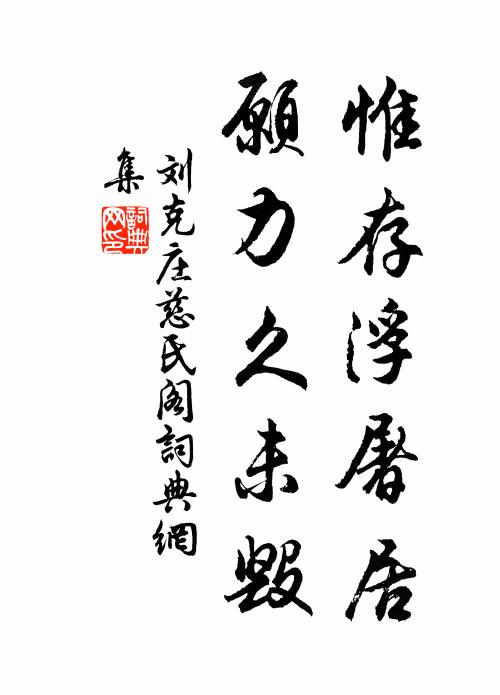 惟存浮屠居
願力久未毀
刘克庄慈氏阁詞典網
集
詞典网印